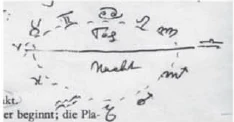 ♊ ♋ ♌
♉ Tag ♍
♈ ♎
Nacht
♓ ♏
♒ ♑ ♐
kt.
er beginnt; die Pla-